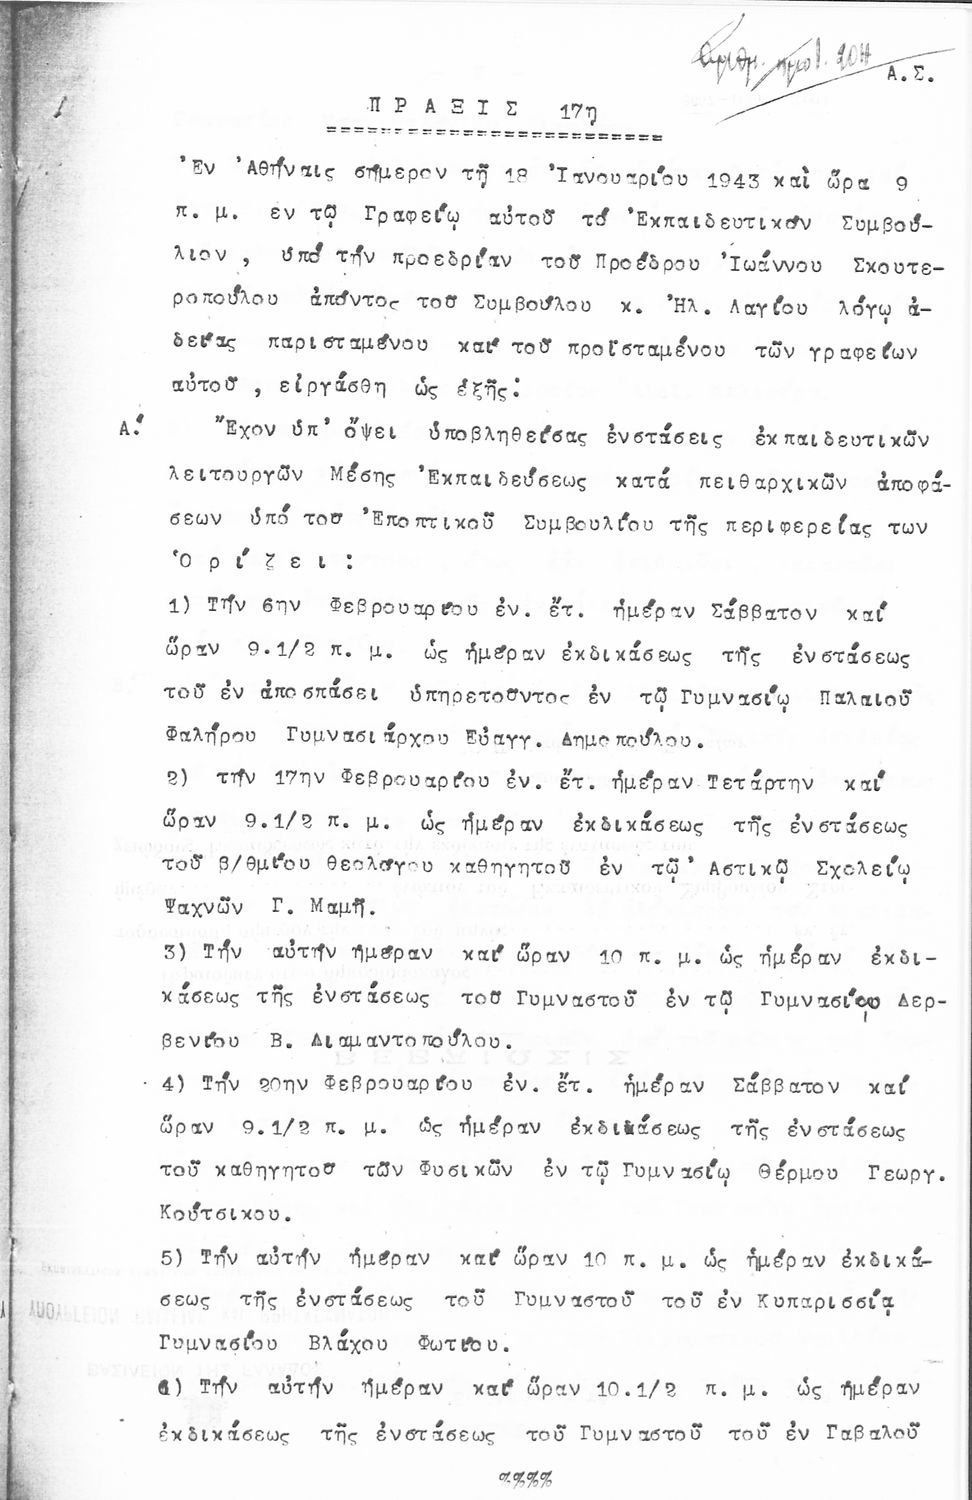 Ἀριθμ. πρωτ. 204
Α.Σ.
Π Ρ Α Ξ Ι Σ 17η
========================
Ἐν Ἀθήναις σήμερον τῇ 18 Ἰανουαρίου 1943 καὶ ὥρα 9
π. μ. εν τῷ Γραφείῳ αὐτοῦ τό Ἐκπαιδευτικόν Συμβού-
λιον , ὑπό τήν προεδρίαν τοῦ Προέδρου Ἰωάννου Σκουτε-
ροπούλου ἀπόντος τοῦ Συμβούλου κ. Ἠλ. Λαγίου λόγῳ ἀ-
δείας παρισταμένου καί τοῦ προϊσταμένου τῶν γραφείων
αὐτοῦ , εἰργάσθη ὡς ἑξῆς:
Α.' Ἔχον ὑπ' ὄψει ὑποβληθείσας ἐνστάσεις ἐκπαιδευτικῶν
λειτουργῶν Μέσης Ἐκπαιδεύσεως κατά πειθαρχικῶν ἀποφά-
σεων ὑπό τοῦ Ἐποπτικοῦ Συμβουλίου τῆς περιφερείας των
Ὁ ρ ί ζ ε ι :
1) Τήν 6ην Φεβρουαρίου ἐν. ἔτ. ἡμέραν Σάββατον καί
ὥραν 9.1/2 π. μ. ὡς ἡμέραν ἐκδικάσεως τῆς ἐνστάσεως
τοῦ ἐν ἀποσπάσει ὑπηρετοῦντος ἐν τῷ Γυμνασίῳ Παλαιοῦ
Φαλήρου Γυμνασιάρχου Εὐαγγ. Δημοπούλου.
2) τήν 17ην Φεβρουαρίου ἐν. ἔτ. ἡμέραν Τετάρτην καί
ὥραν 9.1/2 π. μ. ὡς ἡμέραν ἐκδικάσεως τῆς ἐνστάσεως
τοῦ β/θμίου θεολόγου καθηγητοῦ ἐν τῷ Ἀστικῷ Σχολείῳ
Ψαχνῶν Γ. Μαμῆ.
3) Τήν αὐτήν ἡμέραν καί ὥραν 10 π. μ. ὡς ἡμέραν ἐκδι-
κάσεως τῆς ἐνστάσεως τοῦ Γυμναστοῦ ἐν τῷ Γυμνασίῳ Δερ-
βενίου Β. Διαμαντοπούλου.
4) Τήν 20ην Φεβρουαρίου ἐν. ἔτ. ἡμέραν Σάββατον καί
ὥραν 9.1/2 π. μ. ὡς ἡμέραν ἐκδικάσεως τῆς ἐνστάσεως
τοῦ καθηγητοῦ τῶν Φυσικῶν ἐν τῷ Γυμνασίῳ Θέρμου Γεωργ.
Κούτσικου.
5) Τήν αὐτήν ἡμέραν καί ὥραν 10 π. μ. ὡς ἡμέραν ἐκδικά-
σεως τῆς ἐνστάσεως τοῦ Γυμναστοῦ τοῦ ἐν Κυπαρισσίᾳ
Γυμνασίου Βλάχου Φωτίου.
6) Τήν αὐτήν ἡμέραν καί ὥραν 10.1/2 π. μ. ὡς ἡμέραν
ἐκδικάσεως τῆς ἐνστάσεως τοῦ Γυμναστοῦ τοῦ ἐν Γαβαλοῦ
%%%%